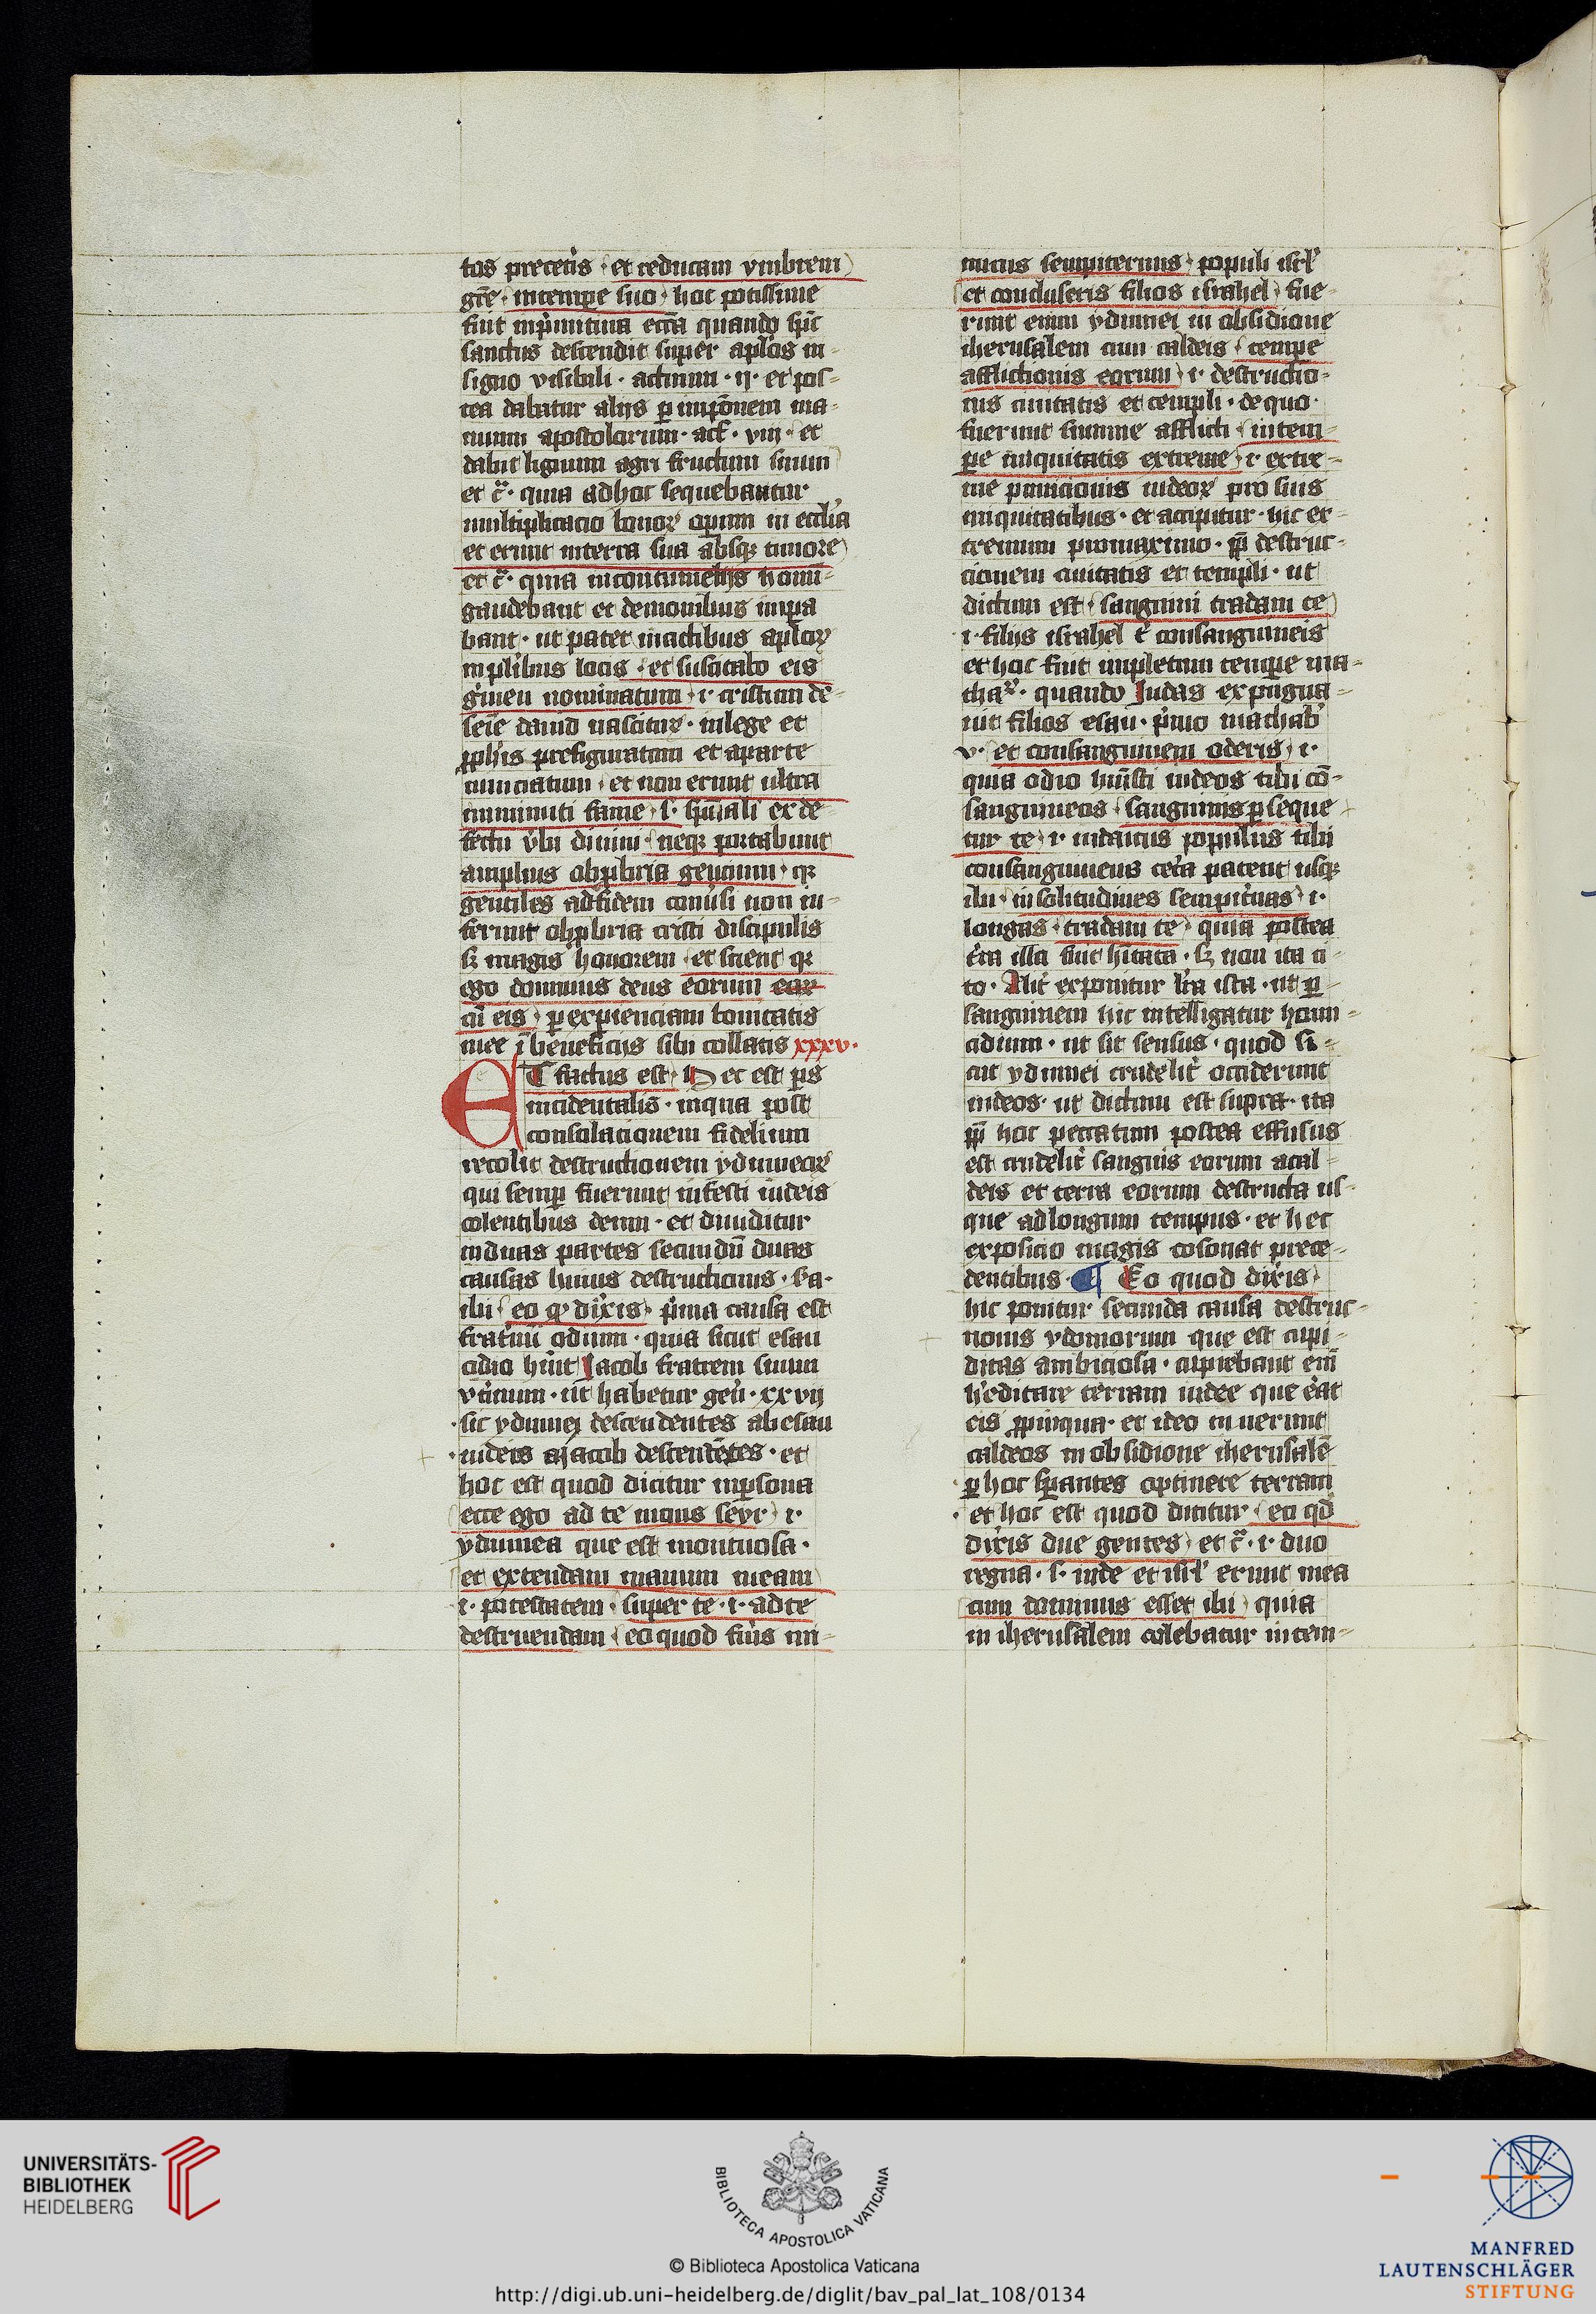 tos preceteris et reducam vmbrem
gre in tempe suo hoc potissime
fuit in p̄mitiua ecca quando sp̄c
sanctus descendit super aplos in-
signo visibili · actuum · ij · et pos-
tea dabatur alijs p̱ impōnem ma-
nuum apostolorum · act̄ · viij · et
dabit lignum agri fructum suum
et c̄ · quia ad hoc sequebantur
multiplicacio bonoꝝ operum in ecclia
et erunt in terra sua absqꝫ timore
et c̄ · quia in contumelijs homī-
gaudebant et demonibus impa
bant · ut patet in actibus aplorꝝ
in plibus locis et suscitabo eis
gmen nominatum · i · cristum de-
seīe dauid nascitur · in lege et
ꝓphis prefiguratum et aparte
nunciatum et non erunt ultra
imminuti fame · s · spūali ex de
fectu v̄bi diuini neqꝫ portabunt
amplius obꝓbria gencium · qꝛ
gentiles ad fidem conu̓si non in-
ferunt obꝓbria cristi discipulis
sꝫ magis honorem et scient qꝛ
ego dominus deus eorum eoꝝ
cū eis · p̱ expienciam bonitatis
mee ī beneficijs sibi collatis xxxv ·
ET factus est · Hec est p̱s
incidentalis · in qua post
consolacionem fidelium
recolit destructionem ydumeoꝝ
qui semp̱ fuerunt infesti iudeis
colentibus deum · et diuiditur
in duas partes secundū duas
causas huius destructionis · sa-
ibi eo qꝫ dixis · p̄ma causa est
frat̓nū odium · quia sicut esau
odio hūit Jacob fratrem suum
vt̓inum · ut habetur geū · xxvij
sic ydumei descendentes ab esau
iudeis a Jacob descendētes · et
hoc est quod dicitur in p̱sona
ecce ego ad te mons seyr · i ·
ydumea que est montuosa ·
et extendam manum meam
i · potestatem super te · i · ad te
destruendam eo quod fu̓is ini-
micus sempiternus · populi isrł
et concluseris filios israhel fue-
runt enim ydumei in obsidione
iherusalem cum caldeis tempe
afflictionis eorum · i · destructio-
nis ciuitatis et templi · de quo ·
fuerunt summe afflicti in tem-
p̱e iniquitatis extreme · i · extre-
me punicionis iudeoꝝ pro suis
iniquitatibus · et accipitur · hic ex-
tremum pro maximo · ꝓp̄ destruc-
cionem ciuitatis et templi · ut
dictum est sanguini tradam te
i · filijs israhel t̓ consanguineis
et hoc fuit impletum tempe ma-
chaꝝ · quando Judas expugna-
uit filios esau · p̄mo machab̄
v · et consanguinem oderis · i ·
quia odio hūisti iudeos tibi cō-
sanguineos sanguinis p̱seque
tur te · i · iudaicus populus tibi
consanguineus cet̓a patent usqꝫ
ibi in solitudines sempit̓nas · i ·
longas tradam te · quia postea
t̓ra illa fuit hītata · sꝫ non ita ci-
to · Alit̓ exponitur lr̄a ista · ut p̱
sanguinem hic intelligatur homi-
cidium · ut sit sensus · quod si-
cut ydumei crudelit̓ occiderunt
iudeos · ut dictum est supra · ita
ꝓp̄ hoc peccatum postea effusus
est crudelit̓ sanguis eorum a cal-
deis et terra eorum destructa us-
que ad longum tempus · et hec
exposicio magis cosonat prece-
dentibus · ¶ Eo quod dixis
hic ponitur secunda causa destruc-
nonis ydomorum que est cupi-
ditas ambiciosa · cupiebant enī
h̓editare terram iudee que erat
eis ꝓpinqua · et ideo iuuerunt
caldeos in obsidione iherusalē
p̱ hoc sp̱antes optinere terram
et hoc est quod dicitur eo qd̓
dixis due gentes et c̄ · i · duo
regna · s · iude et isrł erunt mea
cum dominus esset ibi quia
in iherusalem colebatur in tem-
UNIVERSITÄTS-
BIBLIOTHEK
HEIDELBERG
BIBLIOTECA APOSTOLICA VATICANA
© Biblioteca Apostolica Vaticana
http://digi.ub.uni-heidelberg.de/diglit/bav_pal_lat_108/0134
MANFRED
LAUTENSCHLÄGER
STIFTUNG